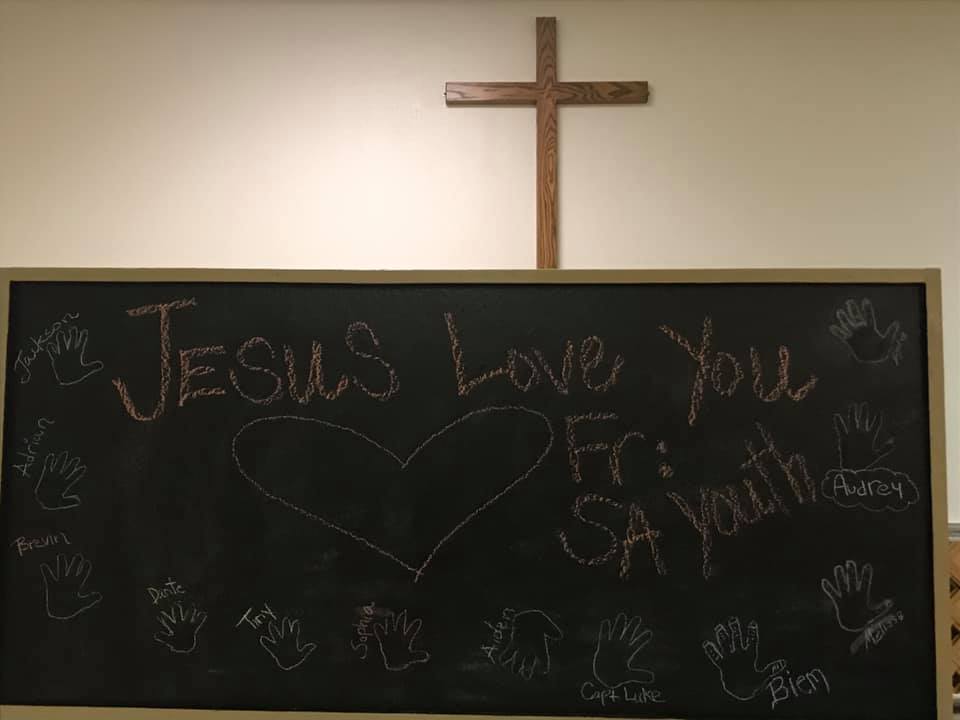 Jesus Love You
Fr:
SA Youth
Jackson
Adrian
Brevin
Dante
Tiny
Sophia
Capt Luke
Biem
Melissa
Audrey